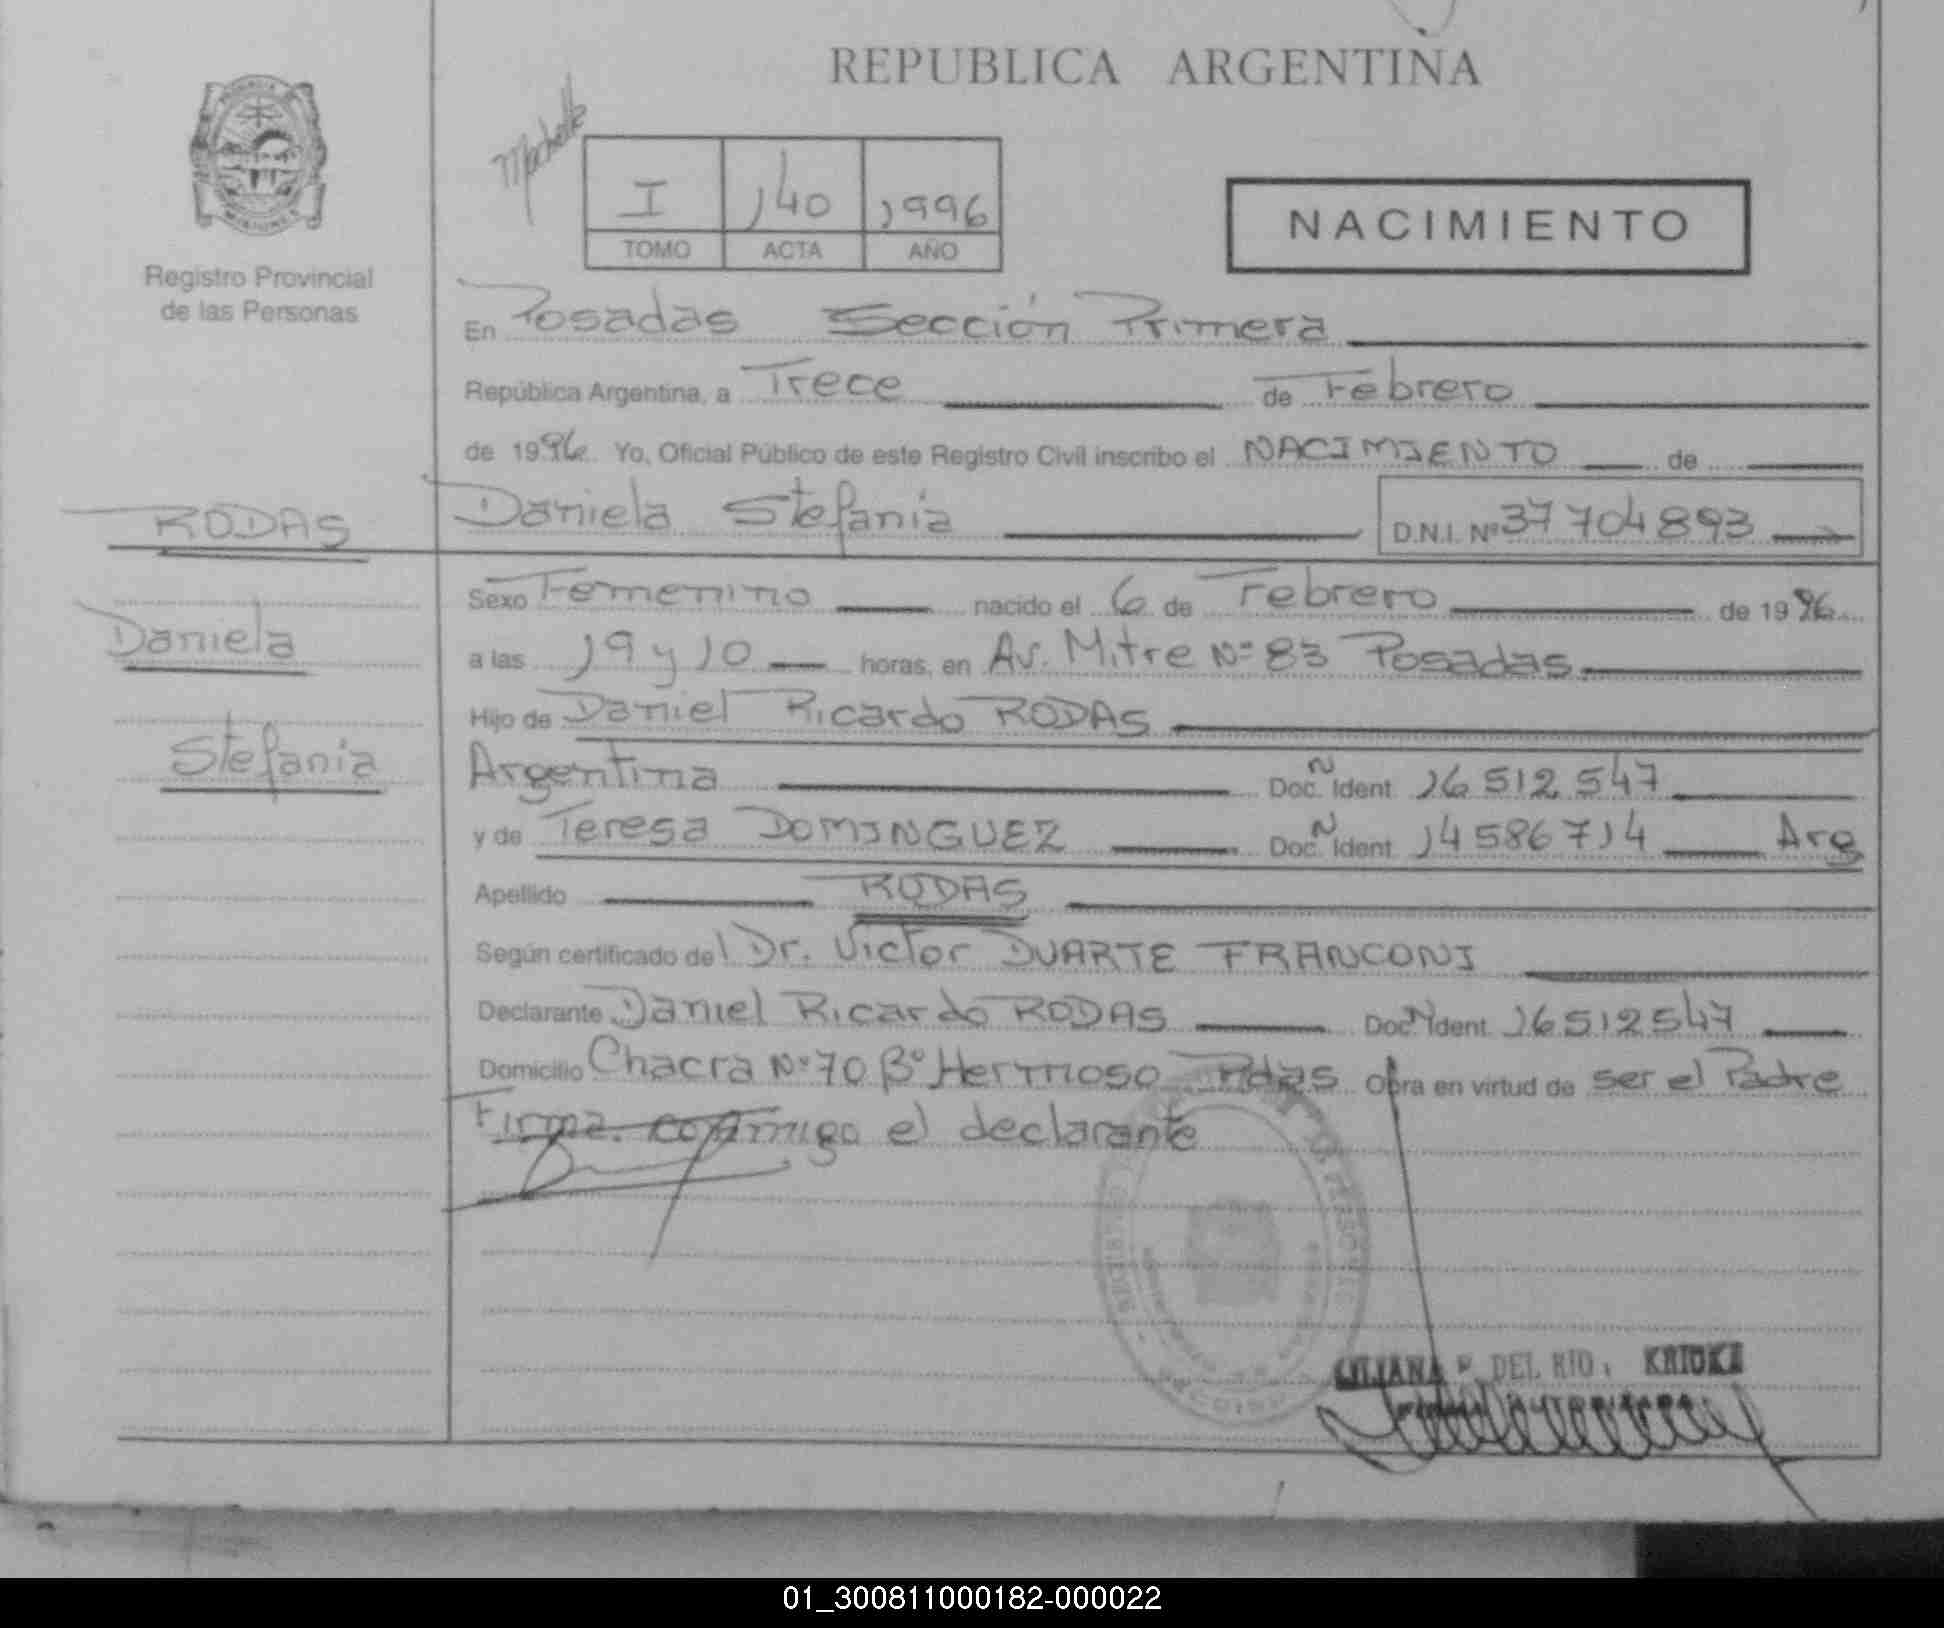 REPUBLICA ARGENTINA
Registro Provincial
de las Personas
I 140 1996
TOMO ACTA AÑO
NACIMIENTO
En Posadas Sección Primera
República Argentina, a Trece de Febrero
de 1996. Yo, Oficial Público de este Registro Civil inscribo el NACIMIENTO de
RODAS
Daniela Stefania D.N.I. Nº 37704893
Daniela
Stefania
Sexo Femenino nacido el 6 de Febrero de 1996
a las 19 y 10 horas, en Av. Mitre Nº 83 Posadas
Hijo de Daniel Ricardo RODAS
Argentina Doc. N Ident. 16512547
y de Teresa DOMINGUEZ Doc. N Ident. 14586714 Arg
Apellido RODAS
Según certificado del Dr. Victor DUARTE FRANCONI
Declarante Daniel Ricardo RODAS Doc. N Ident. 16512547
Domicilio Chacra Nº 70 Bº Hermoso Pdas Obra en virtud de ser el Padre
Firma conmigo el declarante
LILIANA DEL RIO
01_300811000182-000022